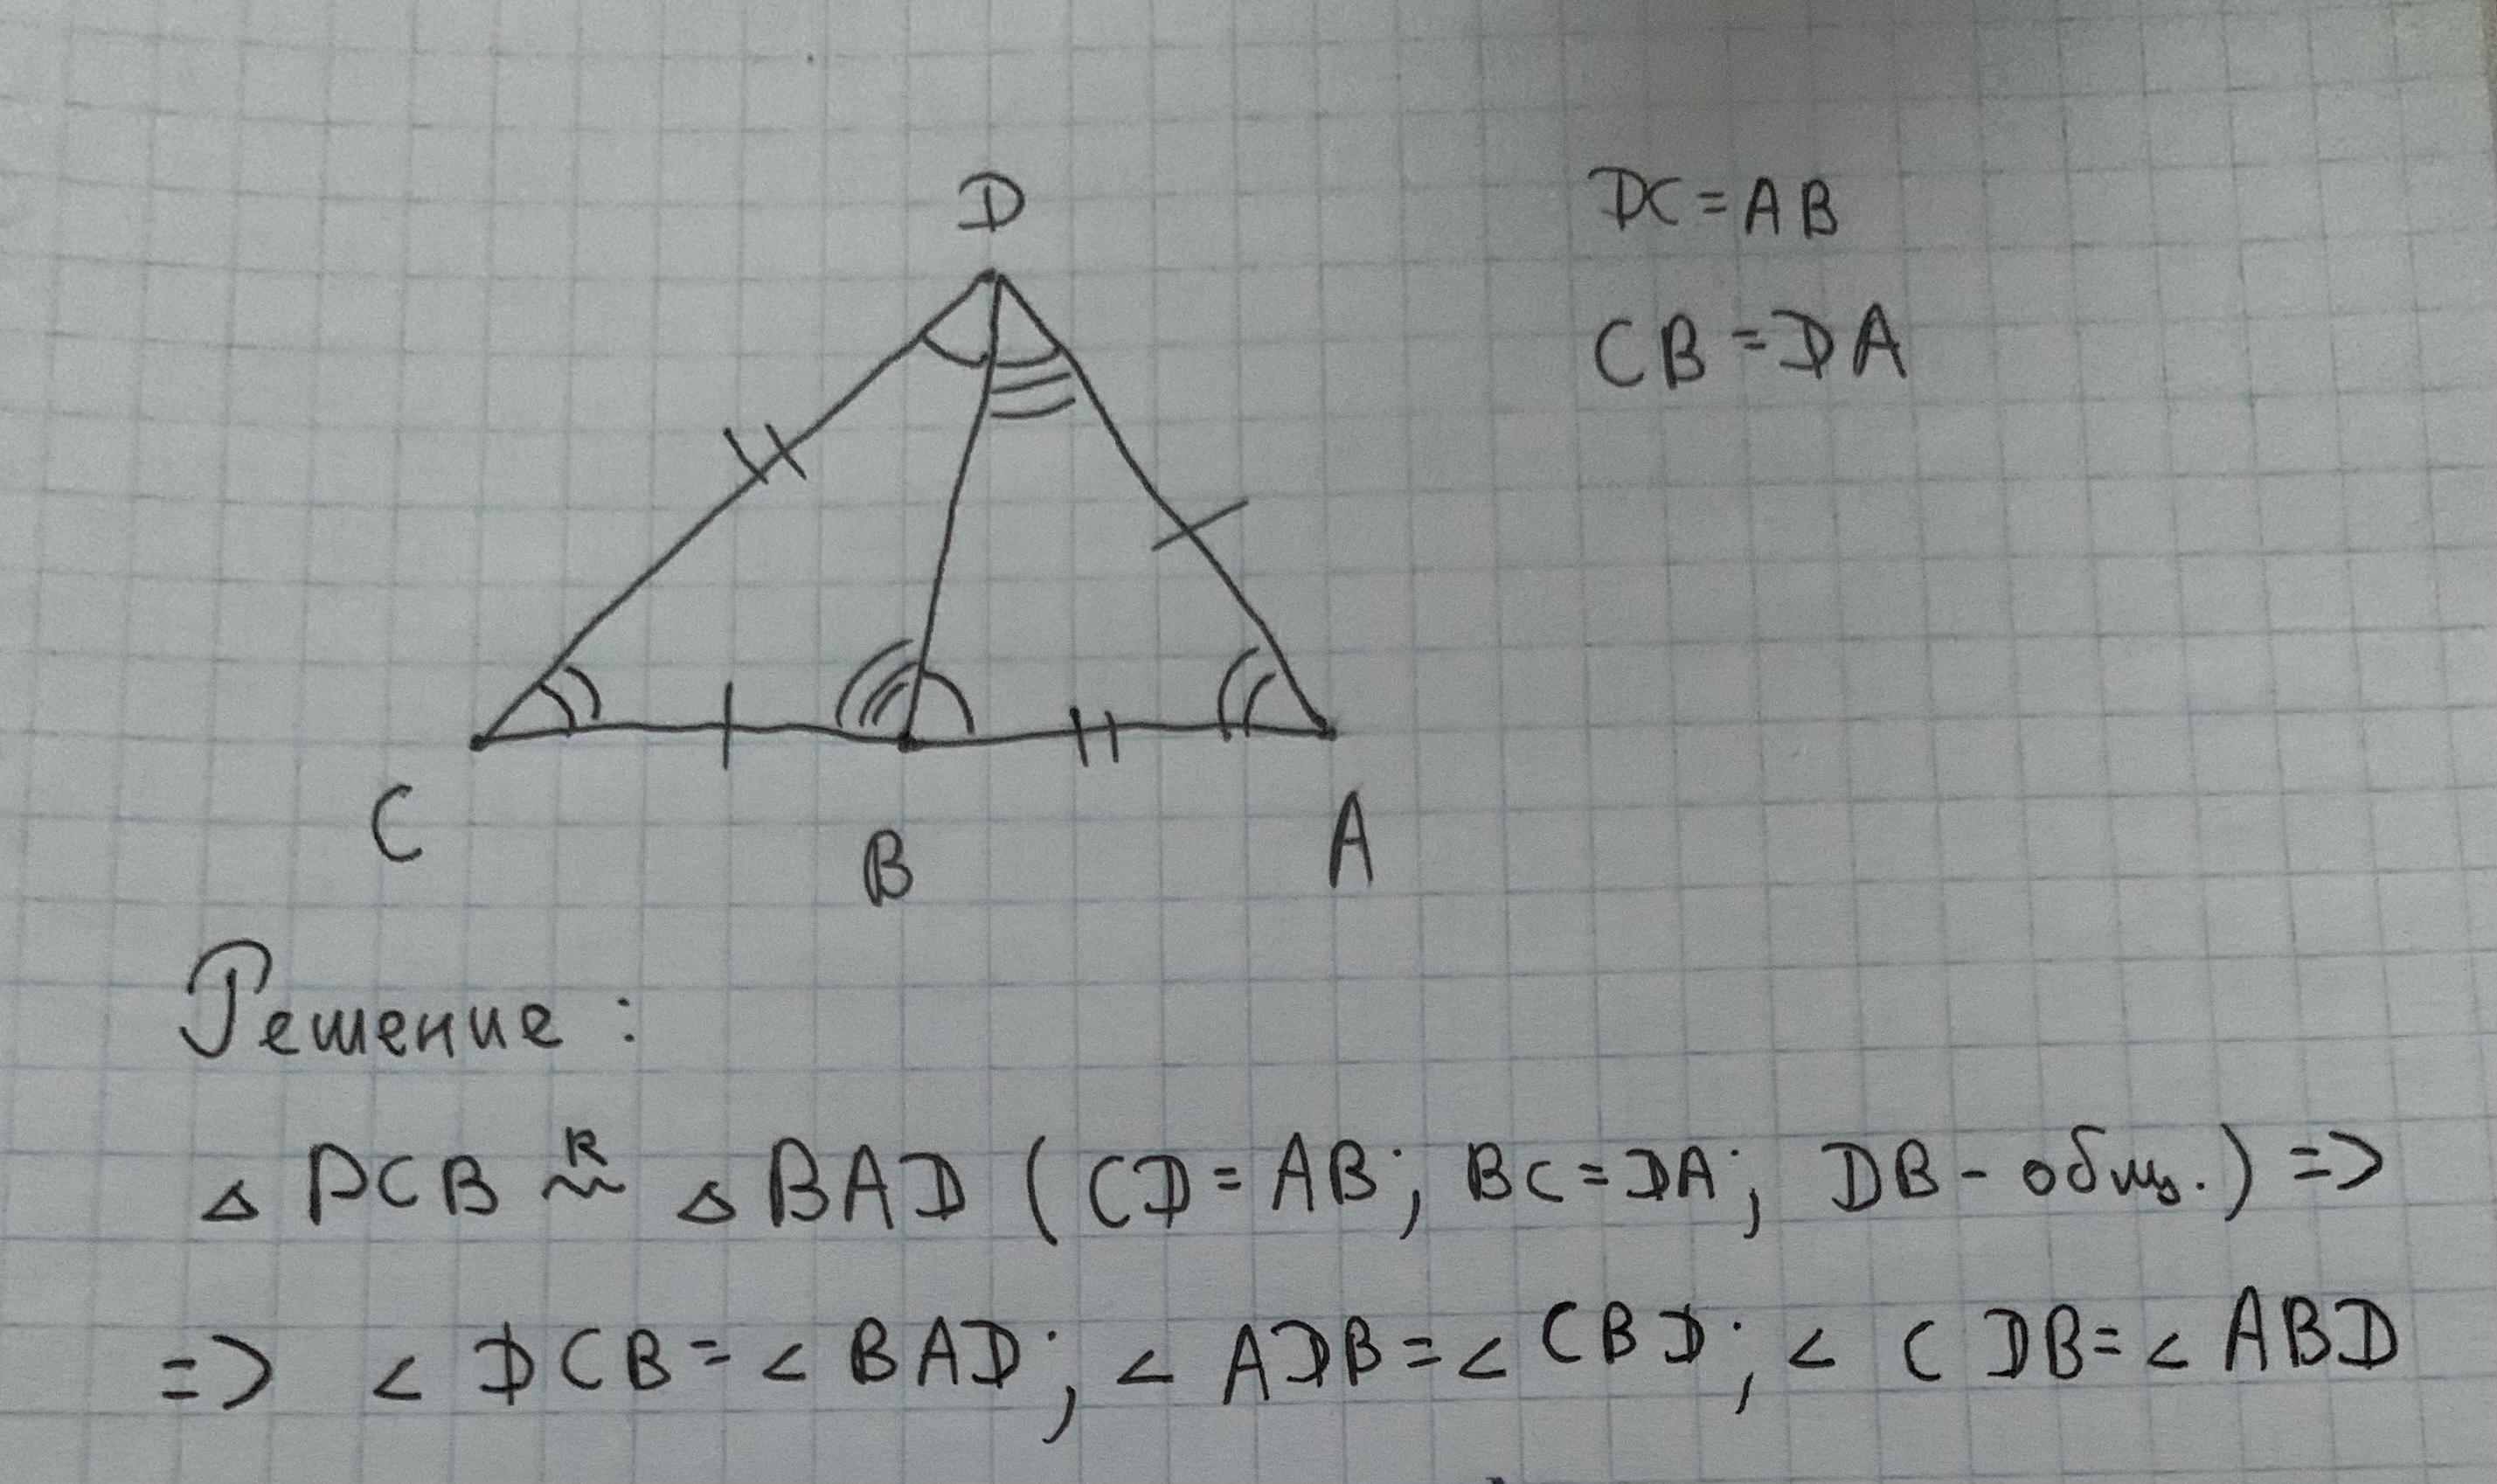 D
DC = AB
CB = DA
C
B
A
Решение :
△ DCB ~ △ BAD ( CD = AB ; BC = DA ; DB - общ. ) =>
=> < DCB = < BAD ; < ADB = < CBD ; < CDB = < ABD